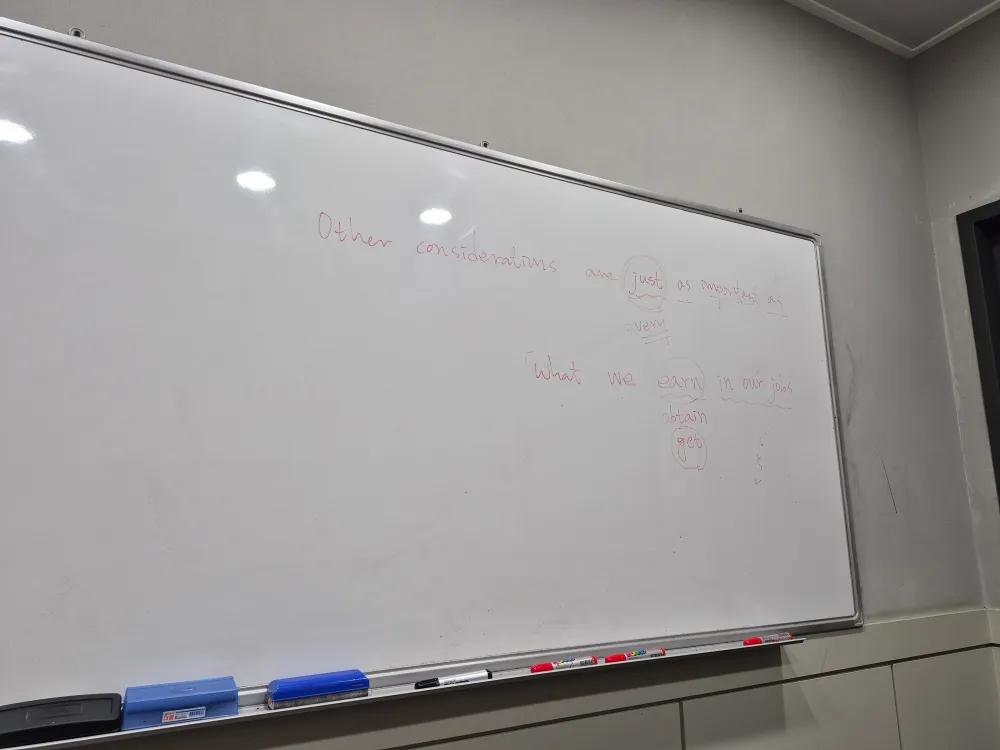 Other considerations are just as important as
even
What we earn in our jobs
obtain
get